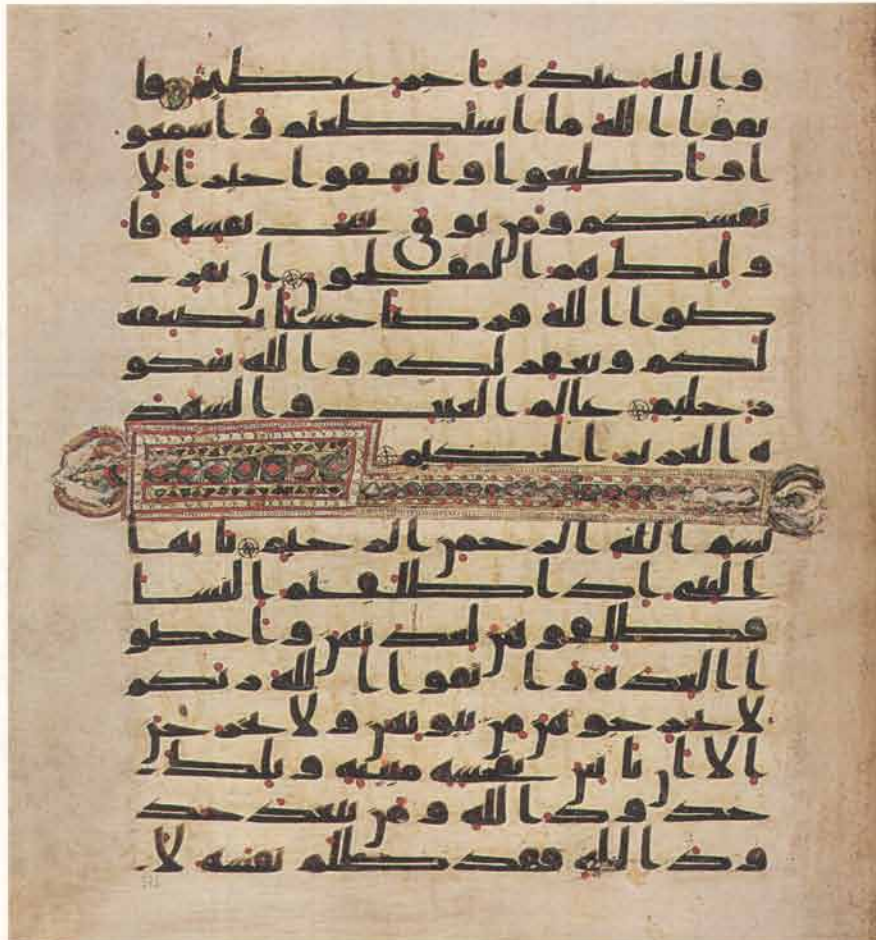 والله عنده اجر عظيم فا
تقوا الله ما استطعتم واسمعو
ا واطيعوا وانفقوا خيرا لا
نفسكم ومن يوق شح نفسه فا
ولئك هم المفلحون ان تقر
ضوا الله قرضا حسنا يضعفه
لكم ويغفر لكم والله شكو
ر حليم عالم الغيب والشهد
ه العزيز الحكيم
بسم الله الرحمن الرحيم يايها
النبي اذا طلقتم النسا
فطلقوهن لعدتهن واحصو
ا العده واتقوا الله ربكم
لا تخرجوهن من بيوتهن ولا يخرجن
الا ان ياتين بفحشه مبينه وتلك
حدود الله ومن يتعد حد
ود الله فقد ظلم نفسه لا